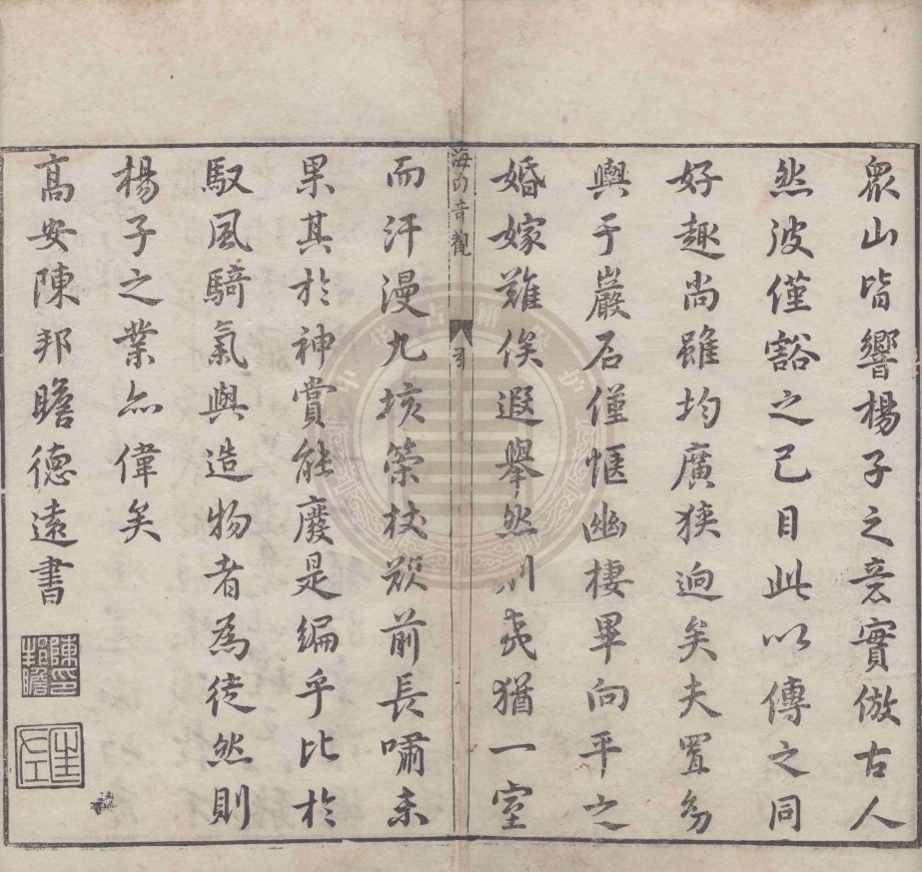 眾山皆響楊子之意實倣古人
然彼僅豁之己目此以傳之同
好趣尚雖均廣狹逈矣夫置身
輿于巖石僅愜幽棲畢向平之
婚嫁難俟遐舉然則夷猶一室
而汗漫九垓策杖欵前長嘯未
果其於神賞能廢是編乎比於
馭風騎氣與造物者為徒然則
楊子之業亦偉矣
高安陳邦瞻德遠書
陳邦瞻印
海內奇觀